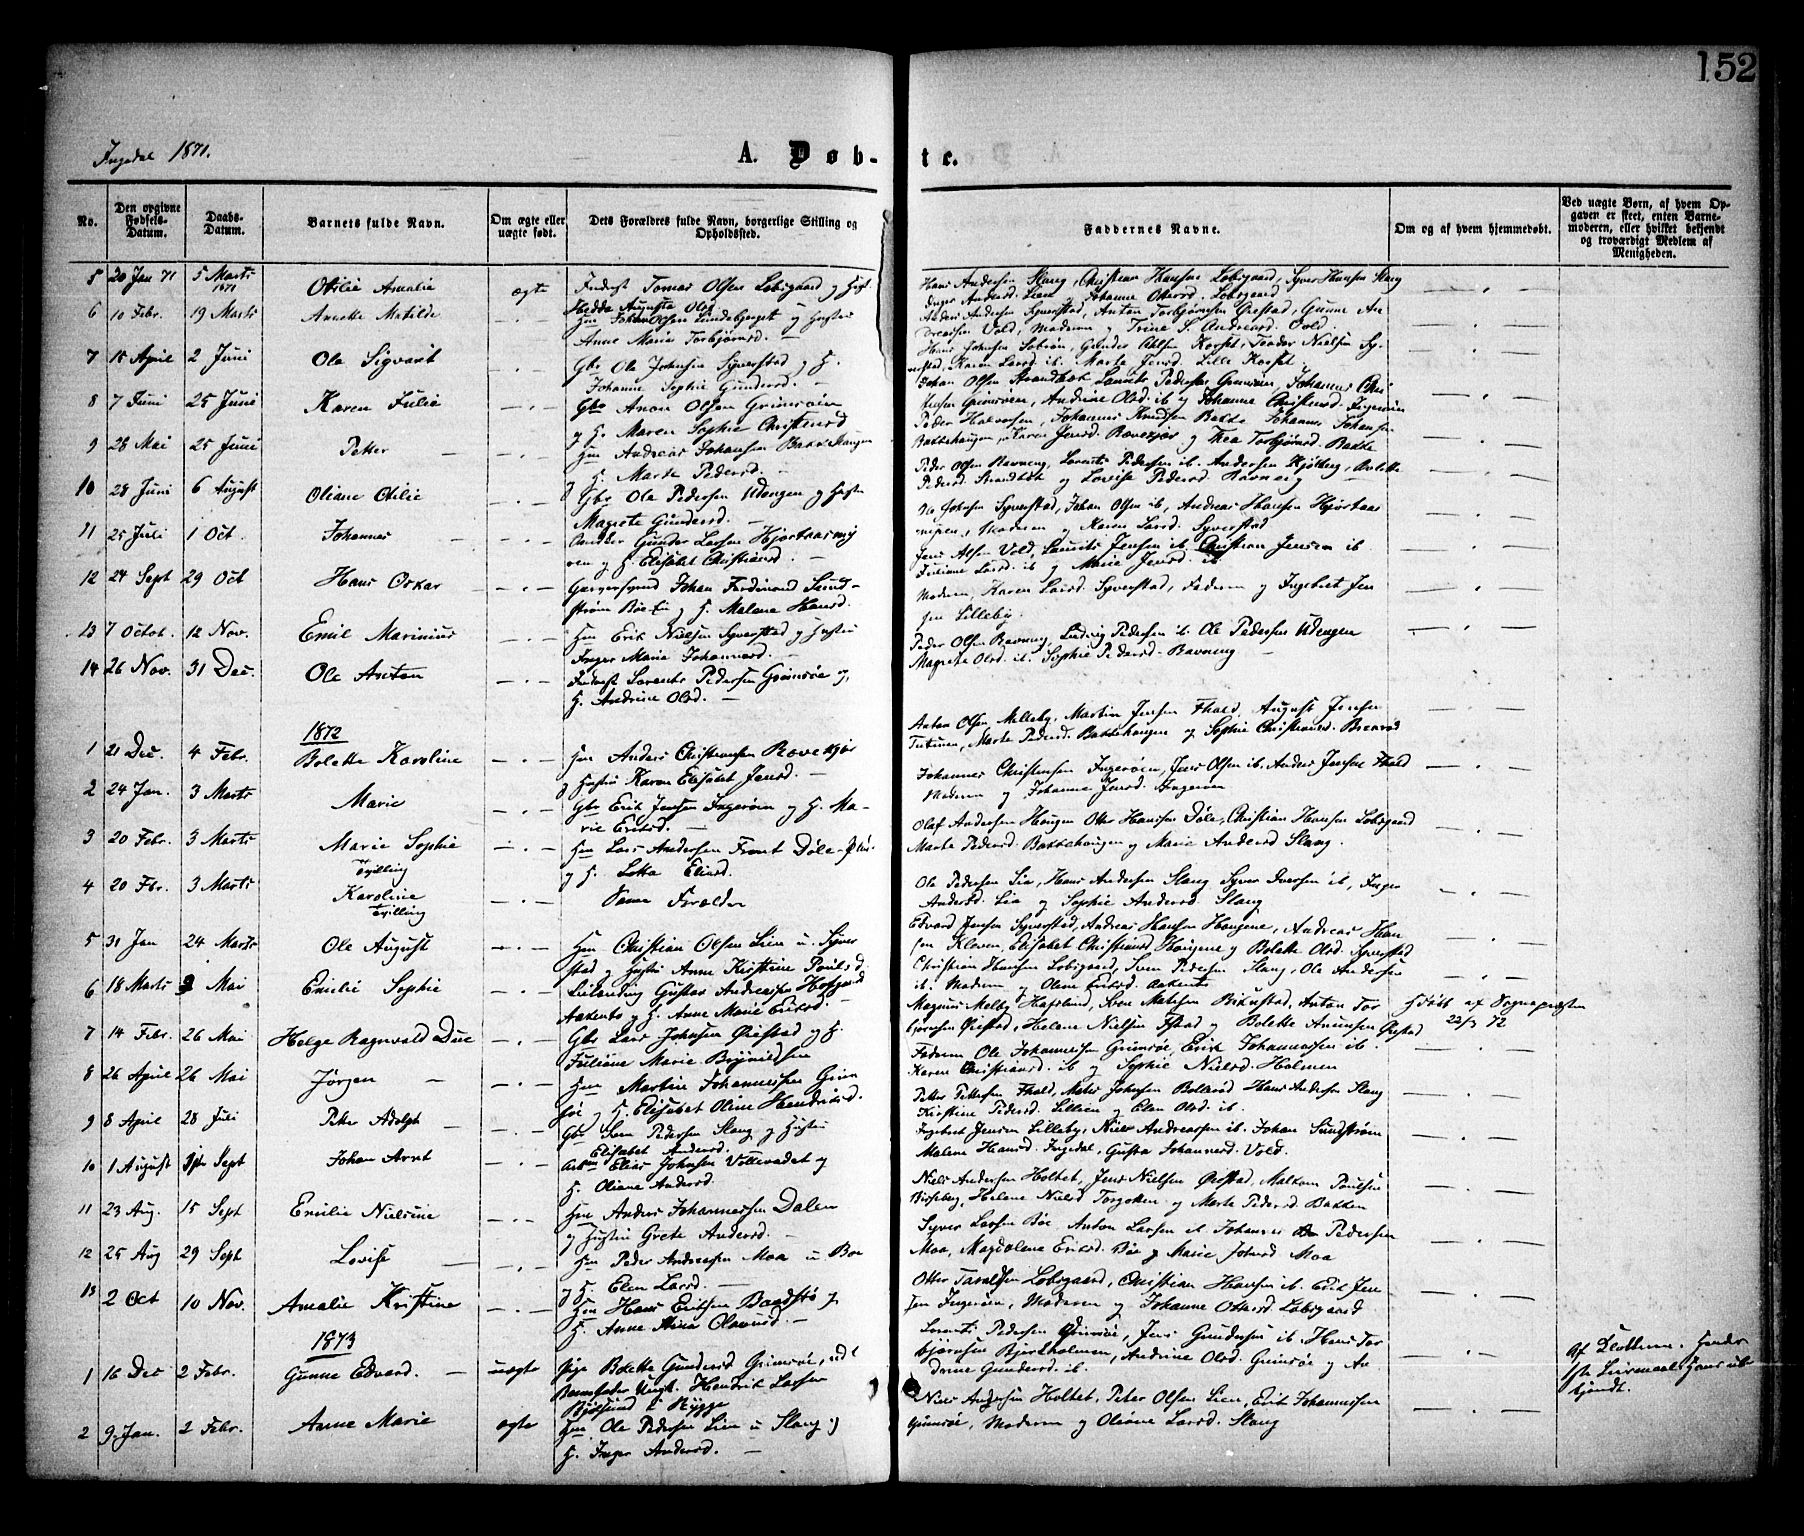 152
Ingedal 1871.
A. Døb-te.
No.
Den opgivne Fødsels-Datum.
Daabs-Datum.
Barnets fulde Navn.
Om ægte eller uægte født.
Dets Forældres fulde Navn, borgerlige Stilling og Opholdssted.
Faddernes Navne.
Om og af hvem hjemmedøbt.
Ved uægte Børn, af hvem Opgaven er skeet, enten Barnemoderen, eller hvilket bekjendt og troværdigt Medlem af Menigheden.
5 20 Jan 71 5 Marts 1871 Otilie Amalie ægte Indest Tomas Olsen Lobsgaard og Hust.
Hedda Augusta Olsd
Hans Andersen Slang, Christian Hansen Lobsgaard, Syver Hansen Slang
Inger Andersd. Lien Johanne Ottersd. Lobsgaard
6 10 Febr. 19 Marts Anette Matilde Hm Johan Olsen Lundeberget og Hustru
Anne Marie Torbjørnsd. —
Andersen Syverstad, Anton Torbjørnsen Ørestad, Gunne An
dreasen Vold, Moderen og Trine S. Andreasd. Vold.
7 15 April 2 Juni Ole Sigvart Gbr Ole Johnsen Syverstad og H.
Johanne Sophie Gundersd. —
Hans Johnsen Gunder Olsen Korset, Teodor Nielsen Sy-
verstad, Karen Larsd ib. Marte Jensd. Lille Korset.
8 7 Juni 25 Juni Karen Julie Gbr Anon Olsen Grimsøen
og H. Maren Sophie Christensd
Johan Olsen Strandbæk Laurits Pedersen Grimsøen, Johannes Chri
stensen Grimsøen, Andrine Olsd ib og Johanne Christensd. Ingerøen
9 28 Mai 25 Juni Petter Hm Andreas Johansen Bakkehaugen
H. Marte Pedersd. —
Peder Halvorsen, Johannes Knudsen Bakke Johannes Johansen
Bakkehaugen, Karen Jensd. Rævekjær og Thea Torbjørnsd. Bakke
10 28 Juni 6 August Oliane Otilie Gbr Ole Pedersen Udengen og Hustru
Magrete Gundersd. —
Peder Olsen Ravneng, Lorents Pedersen ib. Andersen Kjølberg,
Pedersd Strandbæk og Lovise Pedersd Ravneng
11 25 Juli 1 Oct. Johannes Gunder Larsen Hjortnæsmy
ren og H. Elisabet Christiansd.
Ole Johnsen Syverstad, Johan Olsen ib, Andreas Hansen Hjortnæs
myren, Moderen og Karen Larsd. Syverstad
12 24 Sept 29 Oct Hans Oskar Garversvend Johan Ferdinand Sund-
strøm Bøe og H. Malene Hansd.
Jens Olsen Vold, Laurits Jensen ib Christian Jensen ib
Juliane Larsd. ib og Marie Jensd. ib
13 7 Octob. 12 Nov. Emil Marinius Hm Erik Nielsen Syverstad og Hustru
Inger Marie Johannesd. —
Moderen, Karen Larsd. Syverstad, Faderen og Ingebret Jen
sen Lilleby.
14 26 Nov. 31 Dec. Ole Anton Inderst Lorents Pedersen Grimsøe og
H. Andrine Olsd. —
Peder Olsen Ravneng, Ludvig Pedersen ib. Ole Pedersen Udengen
Magrete Olsd. ib. Sophie Pedersd. Ravneng
1872
1 21 Dec. 4 Febr. Bolette Karoline Hm Anders Christensen Rævekjær
Hustru Karen Elisabet Jensd. —
Anton Olsen Melleby, Martin Jensen Fkald, August Jensen
Tutunen, Marte Pedersd. Bakkehaugen og Sophie Christiansd. Brenrød
2 24 Jan. 3 Marts Marie Gbr Erik Jensen Ingerøen og H. Ma-
rie Eriksd. —
Johannes Christensen Ingerøen, Jens Olsen ib. Anders Jensen Fkald
Moderen og Johanne Jensd. Ingerøen
3 20 Febr. 3 Marts Marie Sophie Tvilling Hm Lars Andersen Frant Døle-
og H. Lotta Eliasd.
Olaf Andersen Haugen Otter Hansen Døle, Christian Hansen Lobsgaard
Marte Pedersd. Bakkehaugen og Marie Andersd Slang.
4 20 Fbr. 3 Marts Karoline Tvilling Samme Forældre
Ole Pedersen Lia, Hans Andersen Slang Syver Iversen ib, Inger
Andersd. Lia og Sophie Andersd Slang
5 31 Jan 24 Marts Ole August Hm Christian Olsen Lien u. Syver
stad og Hustru Anne Kirstine Poulsd.
Edvard Jensen Syverstad, Andreas Hansen Haugene, Andreas Han
sen Kleven, Elisabet Christiansd. Haugene og Bolette Olsd. Syverstad
6 18 Marts 9 Mai Emilie Sophie Gustav Andreassen Hofgaard
og H. Anne Marie Eriksd
Christian Hansen Lobsgaard, Sven Pedersen Slang, Ole Andersen
ib. Moderen og Olene Eriksd.
7 14 Febr. 26 Mai Helge Ragnvald Due Gbr Lars Johnsen Ørestad og H.
Juliane Marie Brynildsen
Magnus Melby Hafslund, Arne Matisen Bikustad, Anton Tor
bjørnsen Ørestad, Helene Nielsen Fstad og Bolette Amundsen Ørestad
Hjdøbt af Sognepræsten
22/3 72
8 26 April 26 Mai Jørgen Hm Martin Johannessen Grim
søe og H. Elisabet Oline Hendriksd.
Faderen Ole Johannesen Grimsøe, Erik Johannessen ib.
Karen Christiansd. ib og Sophie Nielsd. Holmen
9 8 April 28 Juli Peter Adolf Gbr Sven Pedersen Slang og Hustru
Elisabet Andersd.
Petter Pettersen Fkald, Mates Johnsen Bollerød Hans Andersen Slang
Kirstine Pedersd. Lillien og Elen Olsd. ib.
10 1 August Sept Johan Arnt Elias Johnsen Vollevadet og
H. Oliane Andersd.
Ingebret Jensen Lilleby, Niels Andreassen ib. Johan Sundstrøm
Malene Hansd. Ingedal, Gusta Johannesd. Vold.
11 23 Aug. 15 Sept Emilie Nielsine Hm Anders Johannessen Dalen
og Hustru Grete Andersd. —
Niels Andersen Holtet, Jens Nielsen Ørestad, Maltom Poulsen
Helene Nielsd Torgoken og Marte Pedersd. Bakken
12 25 Aug 29 Sept Lovise Hm Peder Andersen Moa u Bøe
og H. Elen Larsd. —
Syver Larsen Bøe, Anton Larsen ib Johannes Pedersen
Moa, Magdalene Eriksd. Bøe og Marie Johnsd Moa
13 2 Oct 10 Nov. Amalie Kristine Hm Hans Eriksen Baadstø og
H. Anne Mina Olavusd. —
Otter Taraldsen Lobsgaard, Christian Hansen ib. Erik Jen
sen Ingerøen, Moderen og Johanne Ottersd. Lobsgaard
1873
1 16 Dec 2 Febr. Gunne Edvard uægte Pige Bolette Gundersd Grimsøe, ud
Barnefader Ungk. Hendrik Larsen
Bjørsund i Rygge
Lorents Pedersen Grimsøe, Jens Gundersen ib. Hans Tor
bjørnsen Bjørkholmen, Andrine Olsd. Grimsøe og An
drine Gundersd. ib.
Af Moderen.
1ste Leiermaal
kjendt.
2 9 Jan. 2 Febr. Anne Marie ægte Hm Ole Pedersen Lien u Slang og
H. Inger Andersd. —
Niels Andersen Holtet, Peter Olsen Lien, Erik Johannessen
Grimsøe, Moderen og Oliane Larsd. Slang